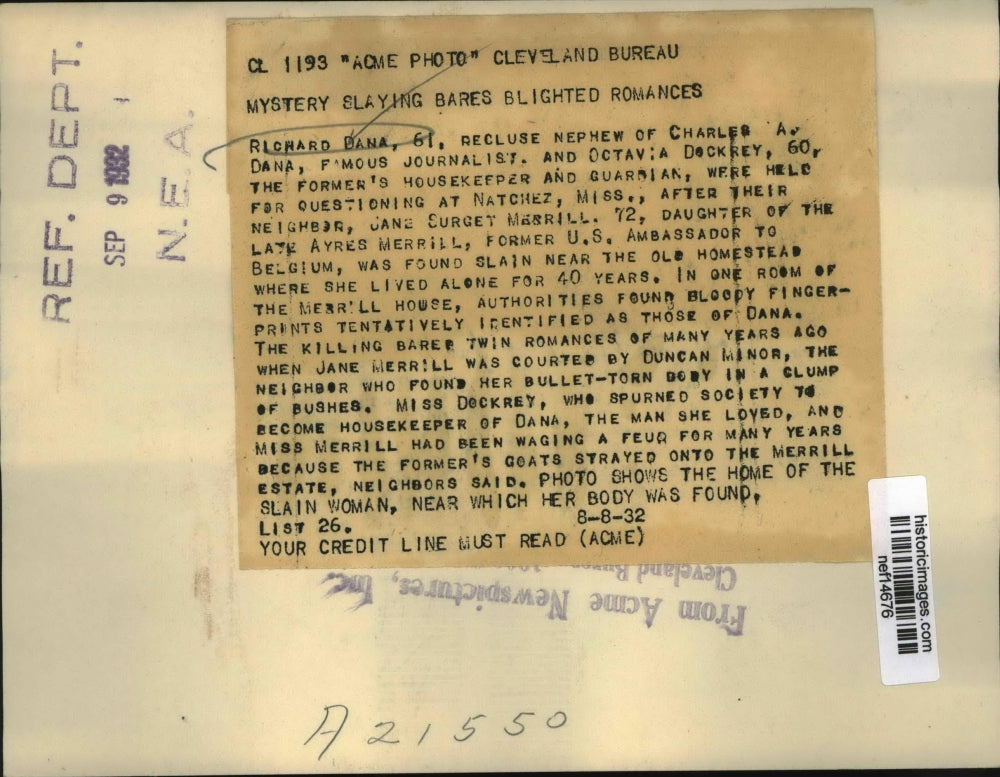 CL 1193 "ACME PHOTO" CLEVELAND BUREAU
MYSTERY SLAYING BARES BLIGHTED ROMANCES
RICHARD DANA, 61, RECLUSE NEPHEW OF CHARLES A.
DANA, FAMOUS JOURNALIST. AND OCTAVIA DOCKREY, 60,
THE FORMER'S HOUSEKEEPER AND GUARDIAN, WERE HELD
FOR QUESTIONING AT NATCHEZ, MISS., AFTER THEIR
NEIGHBOR, JANE SURGET MERRILL. 72, DAUGHTER OF THE
LATE AYRES MERRILL, FORMER U.S. AMBASSADOR TO
BELGIUM, WAS FOUND SLAIN NEAR THE OLD HOMESTEAD
WHERE SHE LIVED ALONE FOR 40 YEARS. IN ONE ROOM OF
THE MERRILL HOUSE, AUTHORITIES FOUND BLOODY FINGER-
PRINTS TENTATIVELY IDENTIFIED AS THOSE OF DANA.
THE KILLING BARED TWIN ROMANCES OF MANY YEARS AGO
WHEN JANE MERRILL WAS COURTED BY DUNCAN MINOR, THE
NEIGHBOR WHO FOUND HER BULLET-TORN BODY IN A CLUMP
OF BUSHES. MISS DOCKREY, WHO SPURNED SOCIETY TO
BECOME HOUSEKEEPER OF DANA, THE MAN SHE LOVED, AND
MISS MERRILL HAD BEEN WAGING A FEUD FOR MANY YEARS
BECAUSE THE FORMER'S GOATS STRAYED ONTO THE MERRILL
ESTATE, NEIGHBORS SAID. PHOTO SHOWS THE HOME OF THE
SLAIN WOMAN, NEAR WHICH HER BODY WAS FOUND.
LIST 26. 8-8-32
YOUR CREDIT LINE MUST READ (ACME)
REF. DEPT.
SEP 9 1932
N. E. A.
From Acme Newspictures, Inc.
Cleveland
historicimages.com
nef14676
A21550